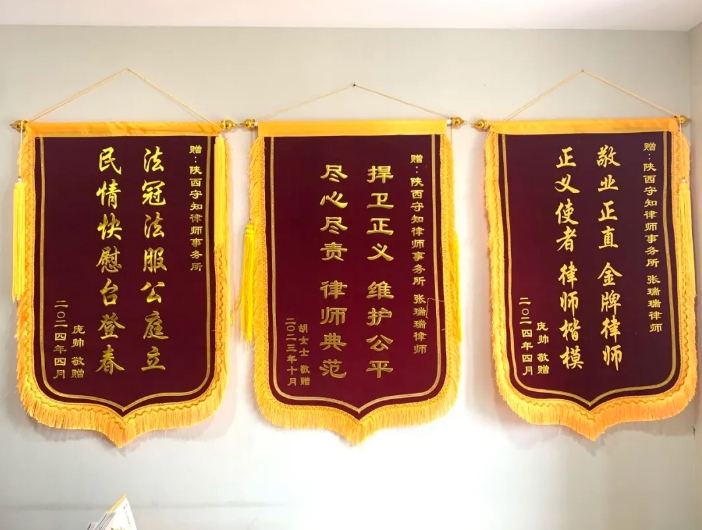 赠：陕西守知律师事务所
法冠法服公庭立
民情快慰台登春
庞帅 敬赠
二〇二四年四月
赠：陕西守知律师事务所 张瑞瑞律师
捍卫正义 维护公平
尽心尽责 律师典范
胡女士 敬赠
二〇二三年十月
赠：陕西守知律师事务所 张瑞瑞律师
敬业正直 金牌律师
正义使者 律师楷模
庞帅 敬赠
二〇二四年四月